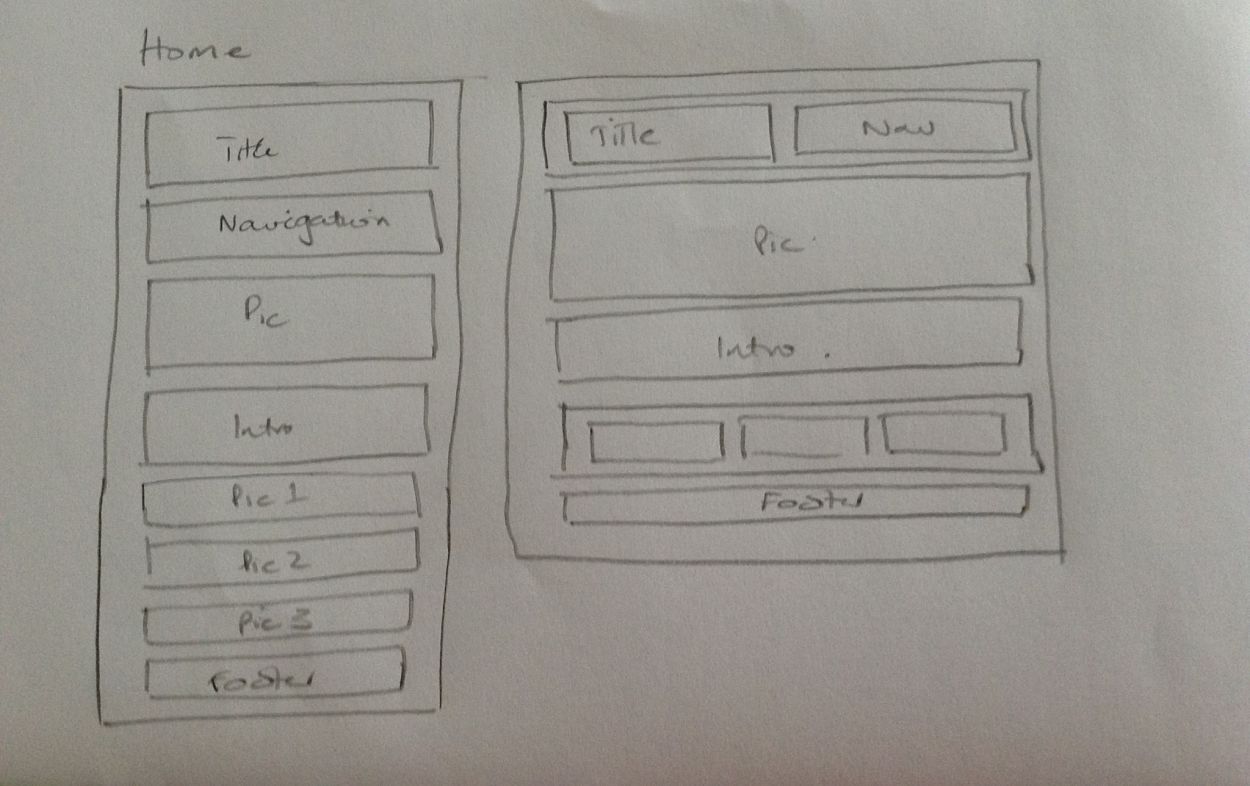 Home
Title
Navigation
Pic
Intro
Pic 1
Pic 2
Pic 3
Footer
Title
Nav
Pic
Intro .
Footer